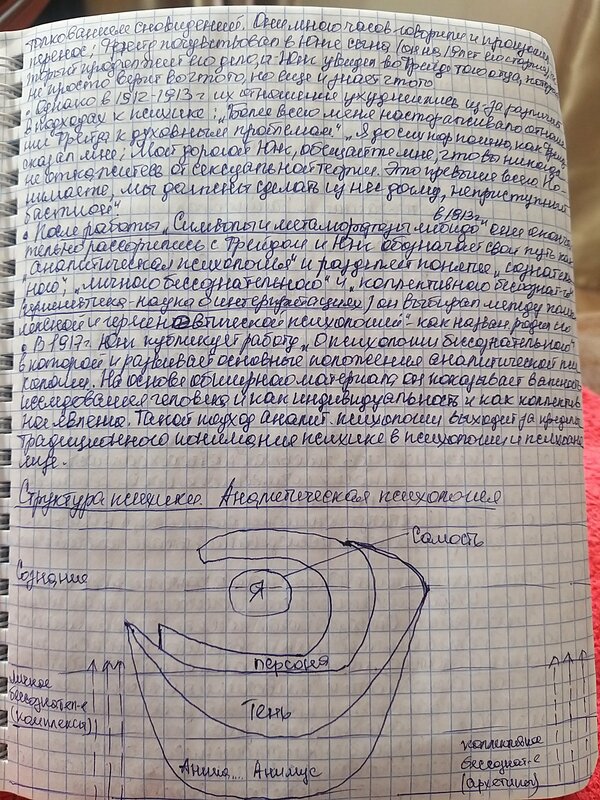 толкованием сновидений. Они много часов говорили и произошёл
перенос: Фрейд почувствовал в Юнге сына (он на 19 лет его старше),
который продолжит его дело, а Юнг увидел во Фрейде того отца, который
не просто верит во что-то, но ещё и знает что-то
• Однако в 1912-1913 г их отношения ухудшились из-за различия
в подходах к психике: „Более всего меня настораживало отноше
ние Фрейда к духовным проблемам". „Я до сих пор помню, как Фрейд
сказал мне: Мой дорогой Юнг, обещайте мне, что вы никогда
не откажетесь от сексуальной теории. Это превыше всего. По-
нимаете, мы должны сделать из неё догму, неприступный
бастион"
в 1913г.
• После работы „Символы и метаморфозы либидо" они оконча
тельно рассорились с Фрейдом и Юнг обозначает свой путь как
„аналитическая психология" и разделяет понятие „сознатель
ного", „личного бессознательного" и „коллективного бессознат-го
(герменевтика - наука о интерпретациях) он выбирал между
и герменевтической психологией" - как назван
• В 1917г. Юнг публикует работу „О психологии бессознательного"
в которой и развивает основные положения аналитической пси
хологии. На основе обширного материала он показывает важность
исследования человека и как индивидуальность и как коллектив
ное явление. Такой подход аналит. психологии выходит за пределы
традиционного понимания психике в психологии и психоана
лизе.
Структура психики. Аналитическая психология
Самость
Сознание
Я
персона
личное
бессознат-е
(комплексы)
Тень
коллективное
бессознат-е
(архетипы)
Анима... Анимус